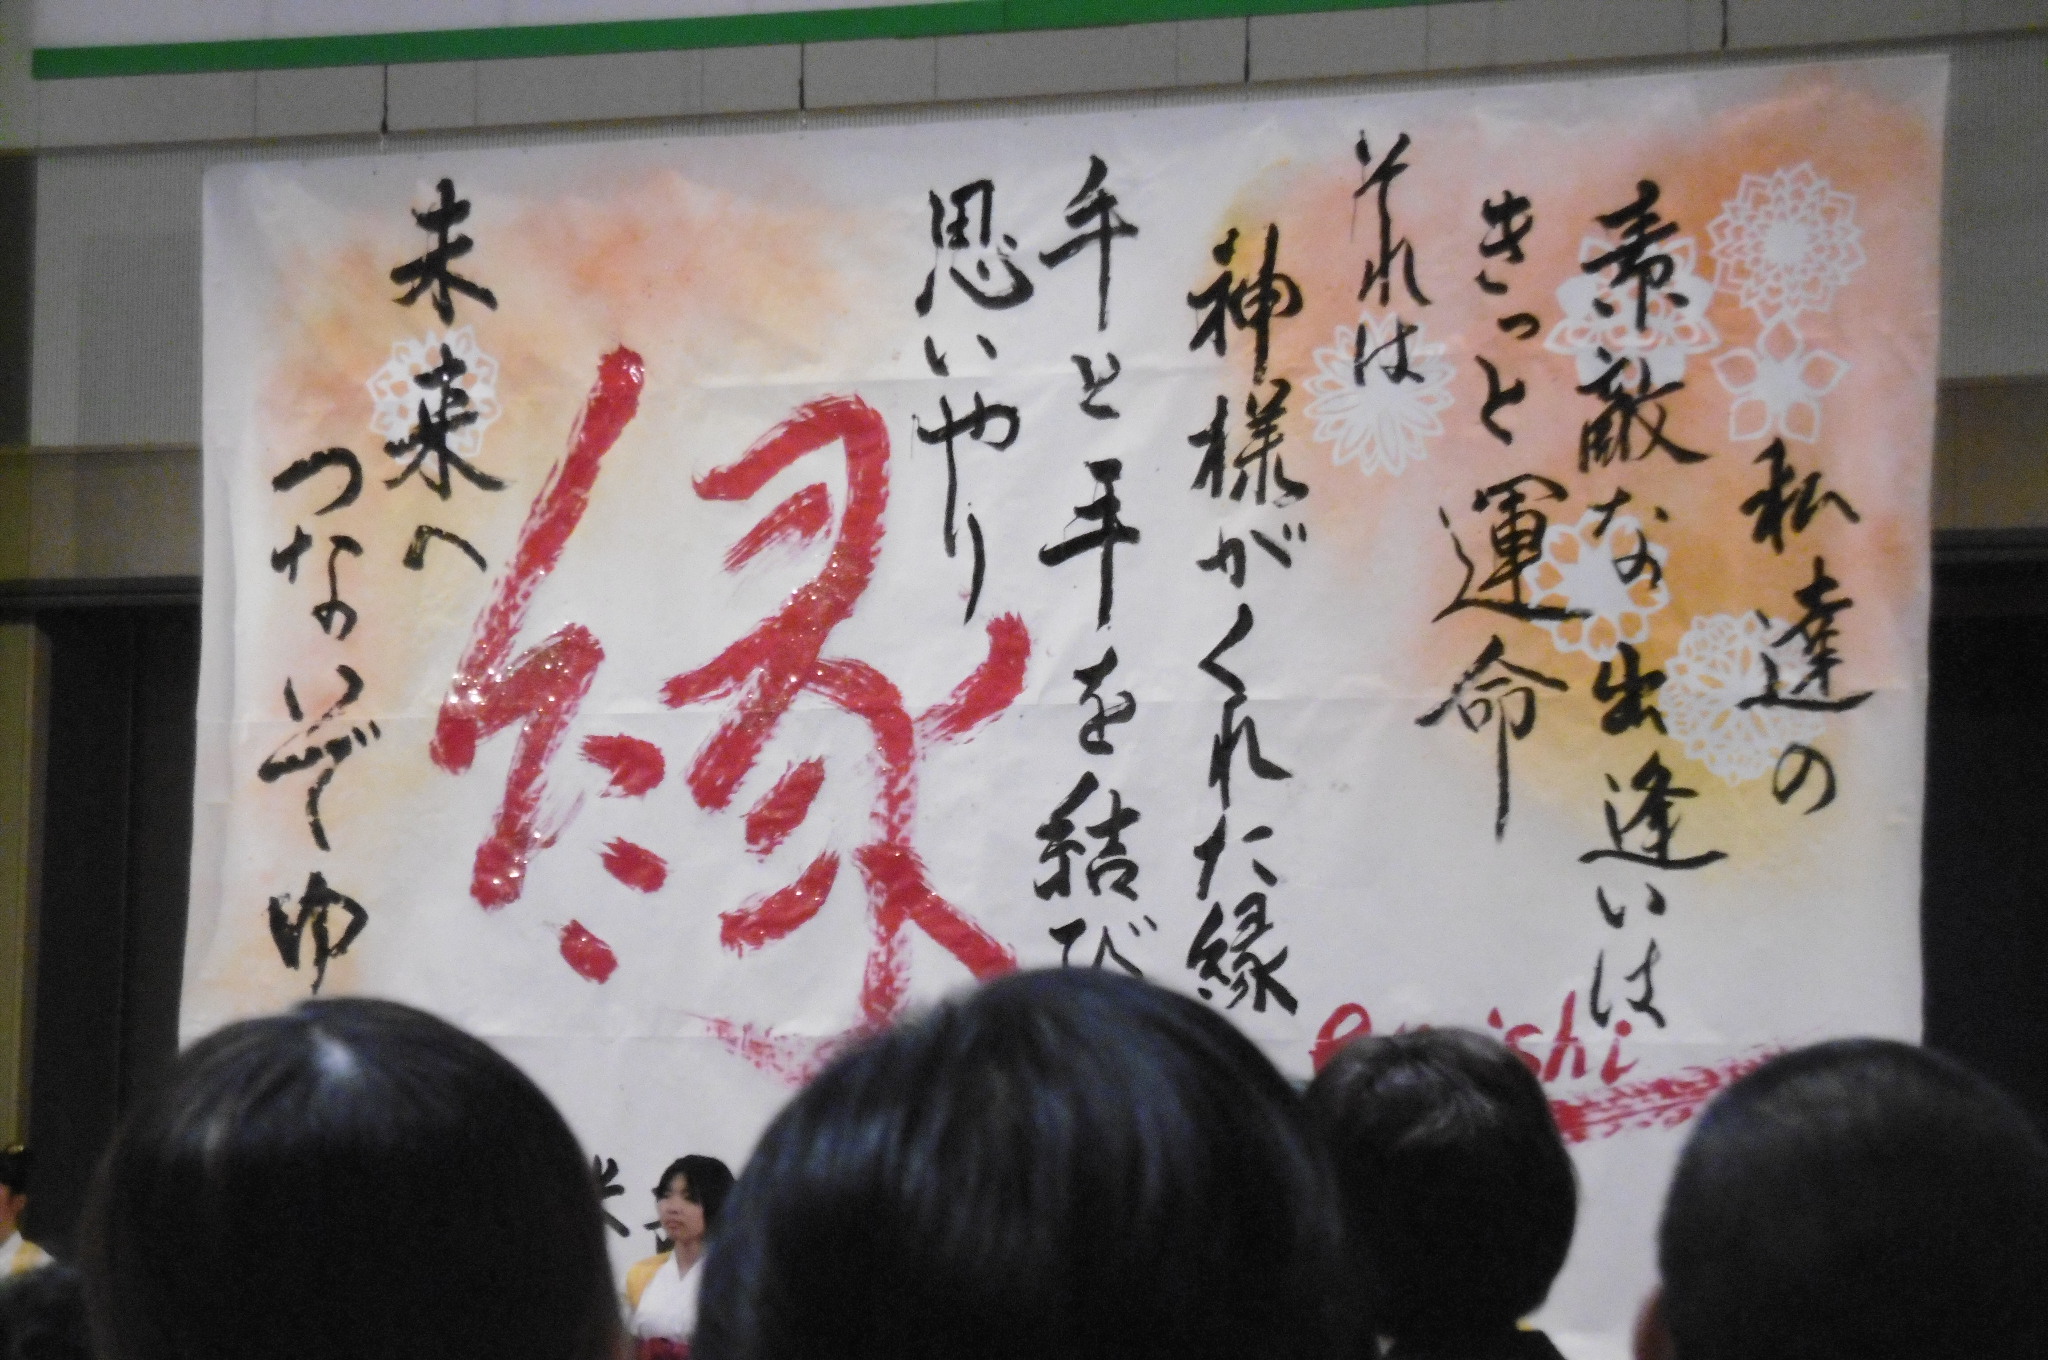 私達の
素敵な出逢いは
きっと運命
それは
神様がくれた縁
手と手を結び
思いやり
縁
未来へ
つないでゆ
enishi
米